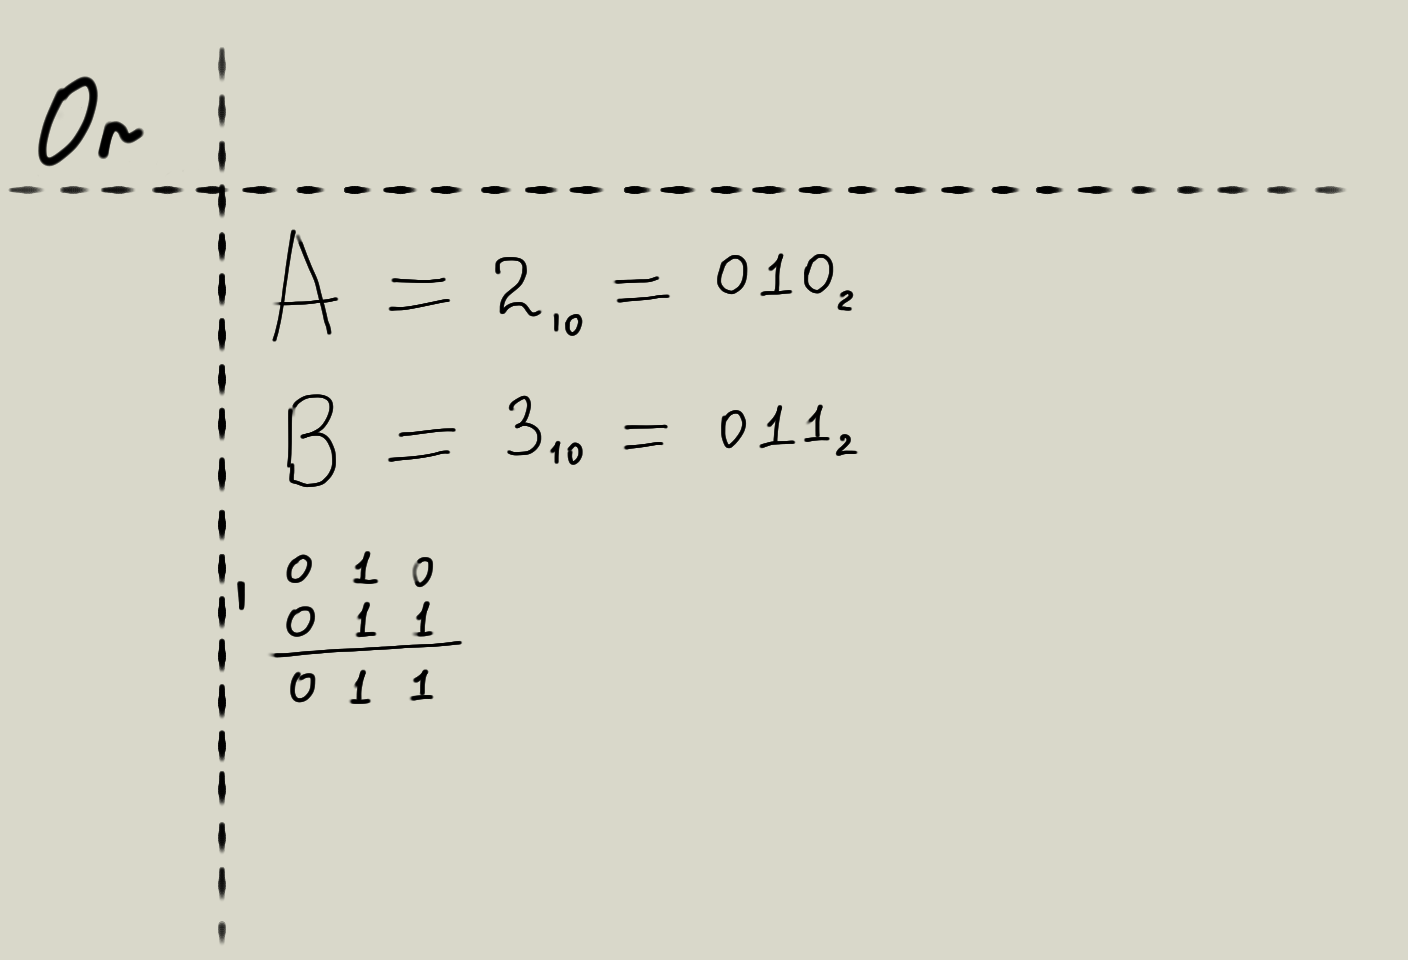 Or
A = 2₁₀ = 010₂
B = 3₁₀ = 011₂
0 1 0
| 0 1 1
0 1 1